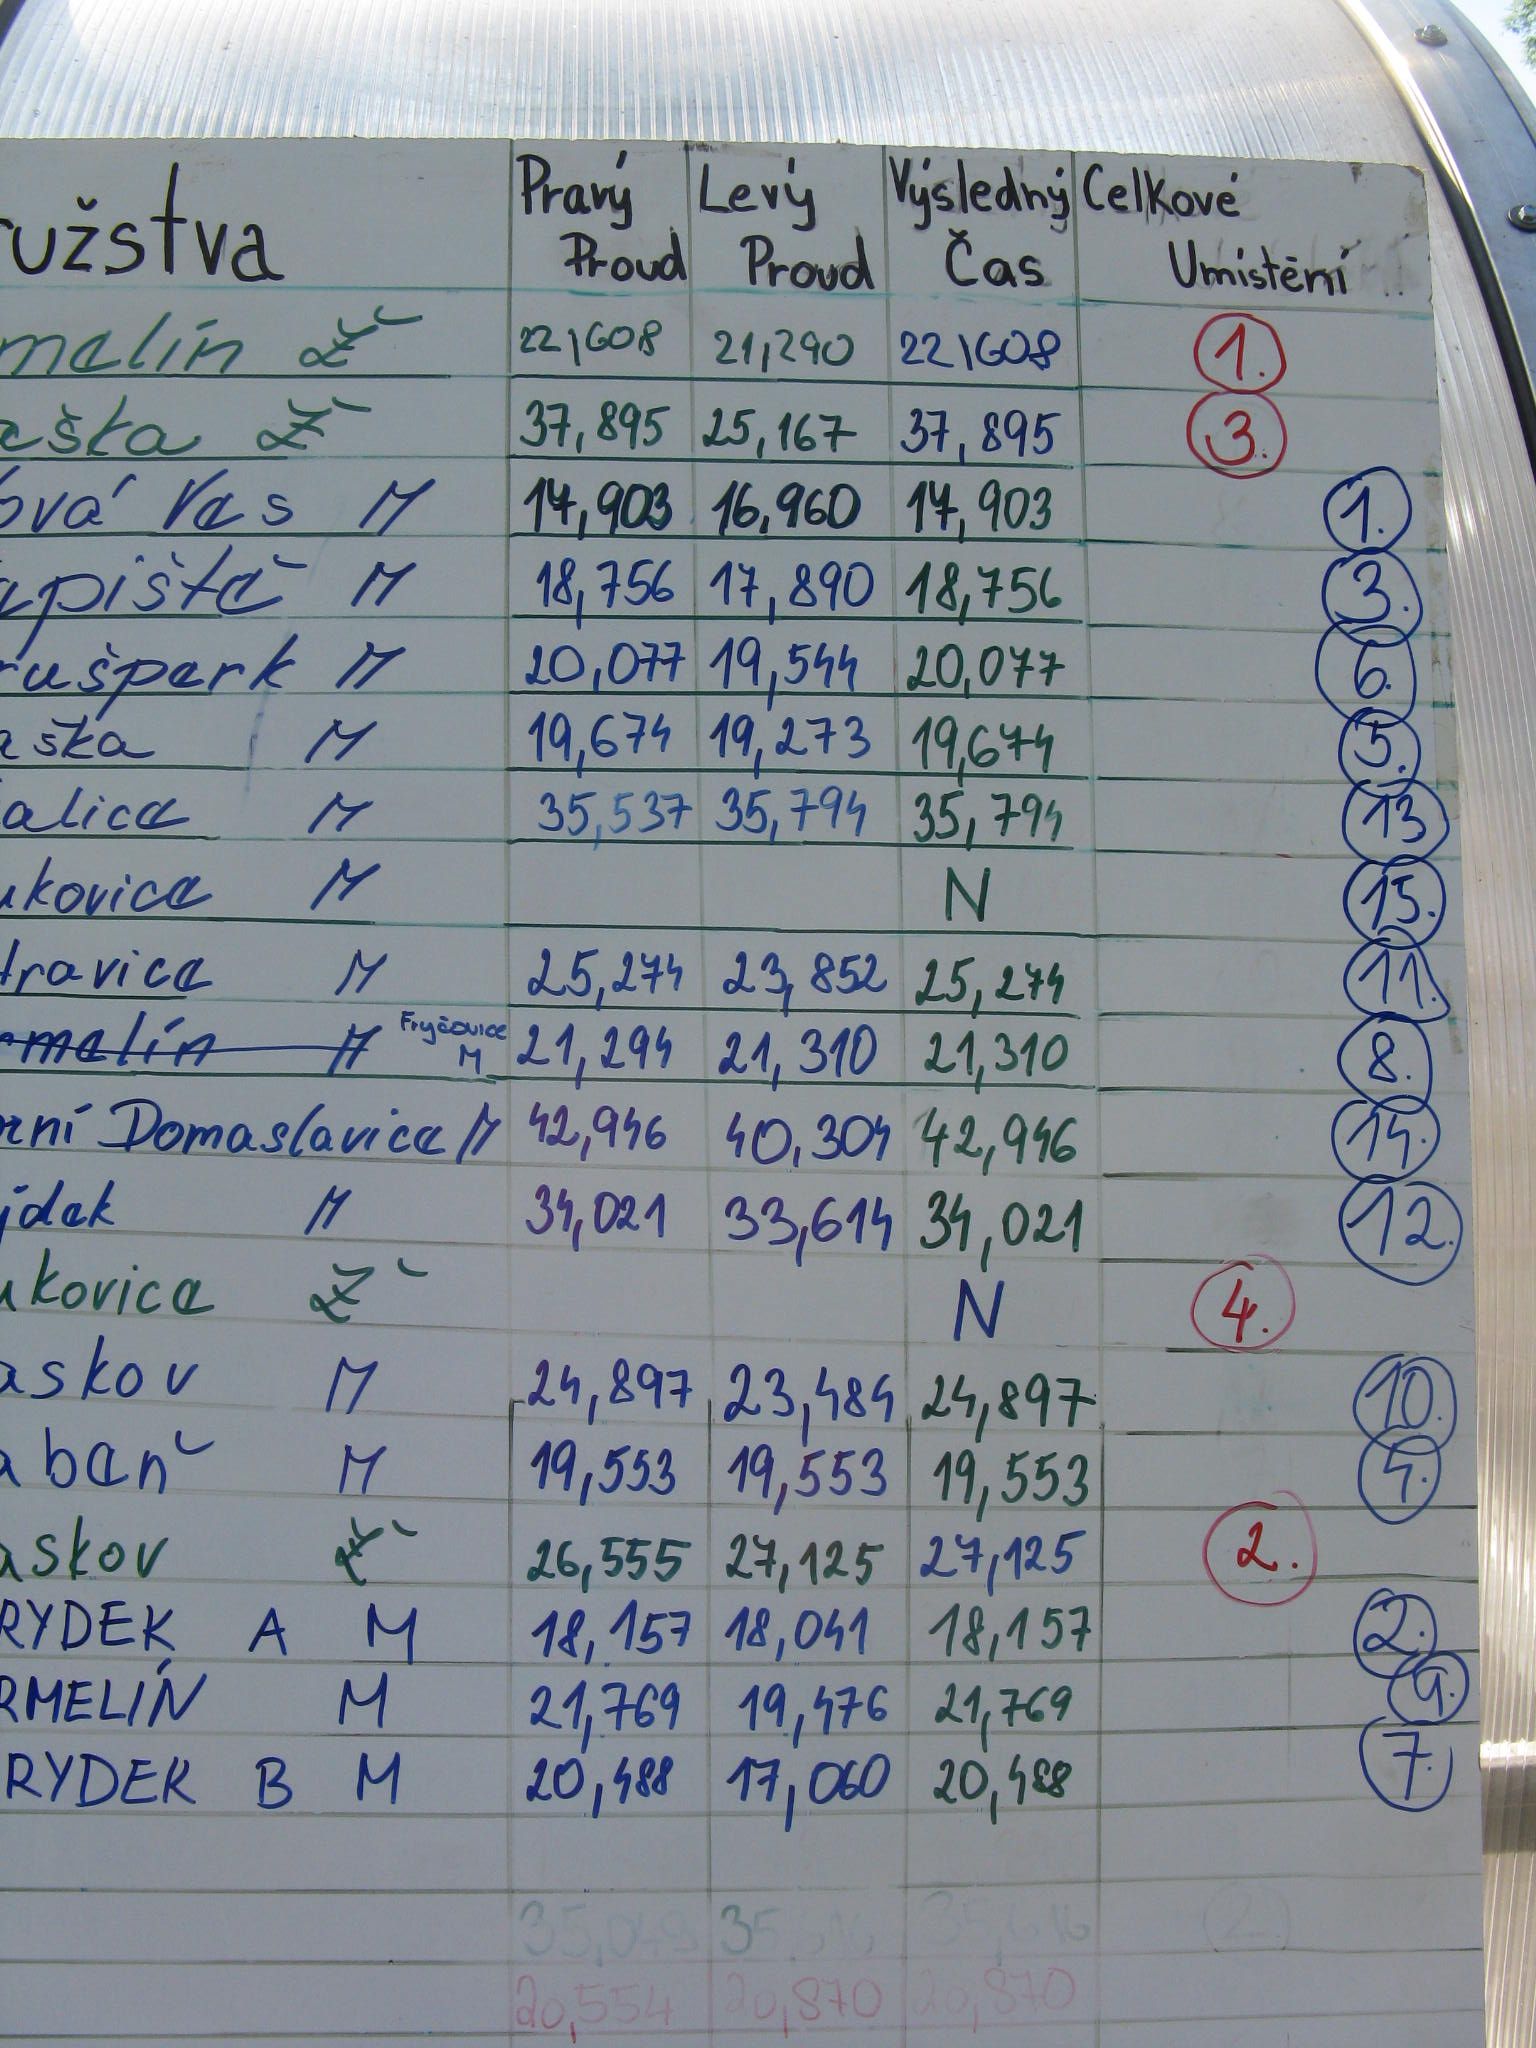 ružstva Pravý Proud Levý Proud Výsledný Čas Celkové Umístění
melín Ž 22,608 21,290 22,608 1.
aška Ž 37,895 25,167 37,895 3.
ová Ves M 17,903 16,960 17,903 1.
apiště M 18,756 17,890 18,756 3.
rušperk M 20,077 19,544 20,077 6.
aška M 19,674 19,273 19,674 5.
alice M 35,537 35,794 35,794 13
ukovice M N 15.
travice M 25,274 23,852 25,274 11.
rmelín M Fryčovice M 21,294 21,310 21,310 8.
rní Domaslavice M 42,946 40,304 42,946 14.
jdek M 34,021 33,614 34,021 12.
ukovice Ž N 4.
askov M 24,897 23,484 24,897 10.
abeň M 19,553 19,553 19,553 4.
askov Ž 26,555 27,125 27,125 2.
RYDEK A M 18,157 18,041 18,157 2.
RMELÍN M 21,769 19,476 21,769 9.
RYDEK B M 20,488 17,060 20,488 7.
20,554 20,870 20,870